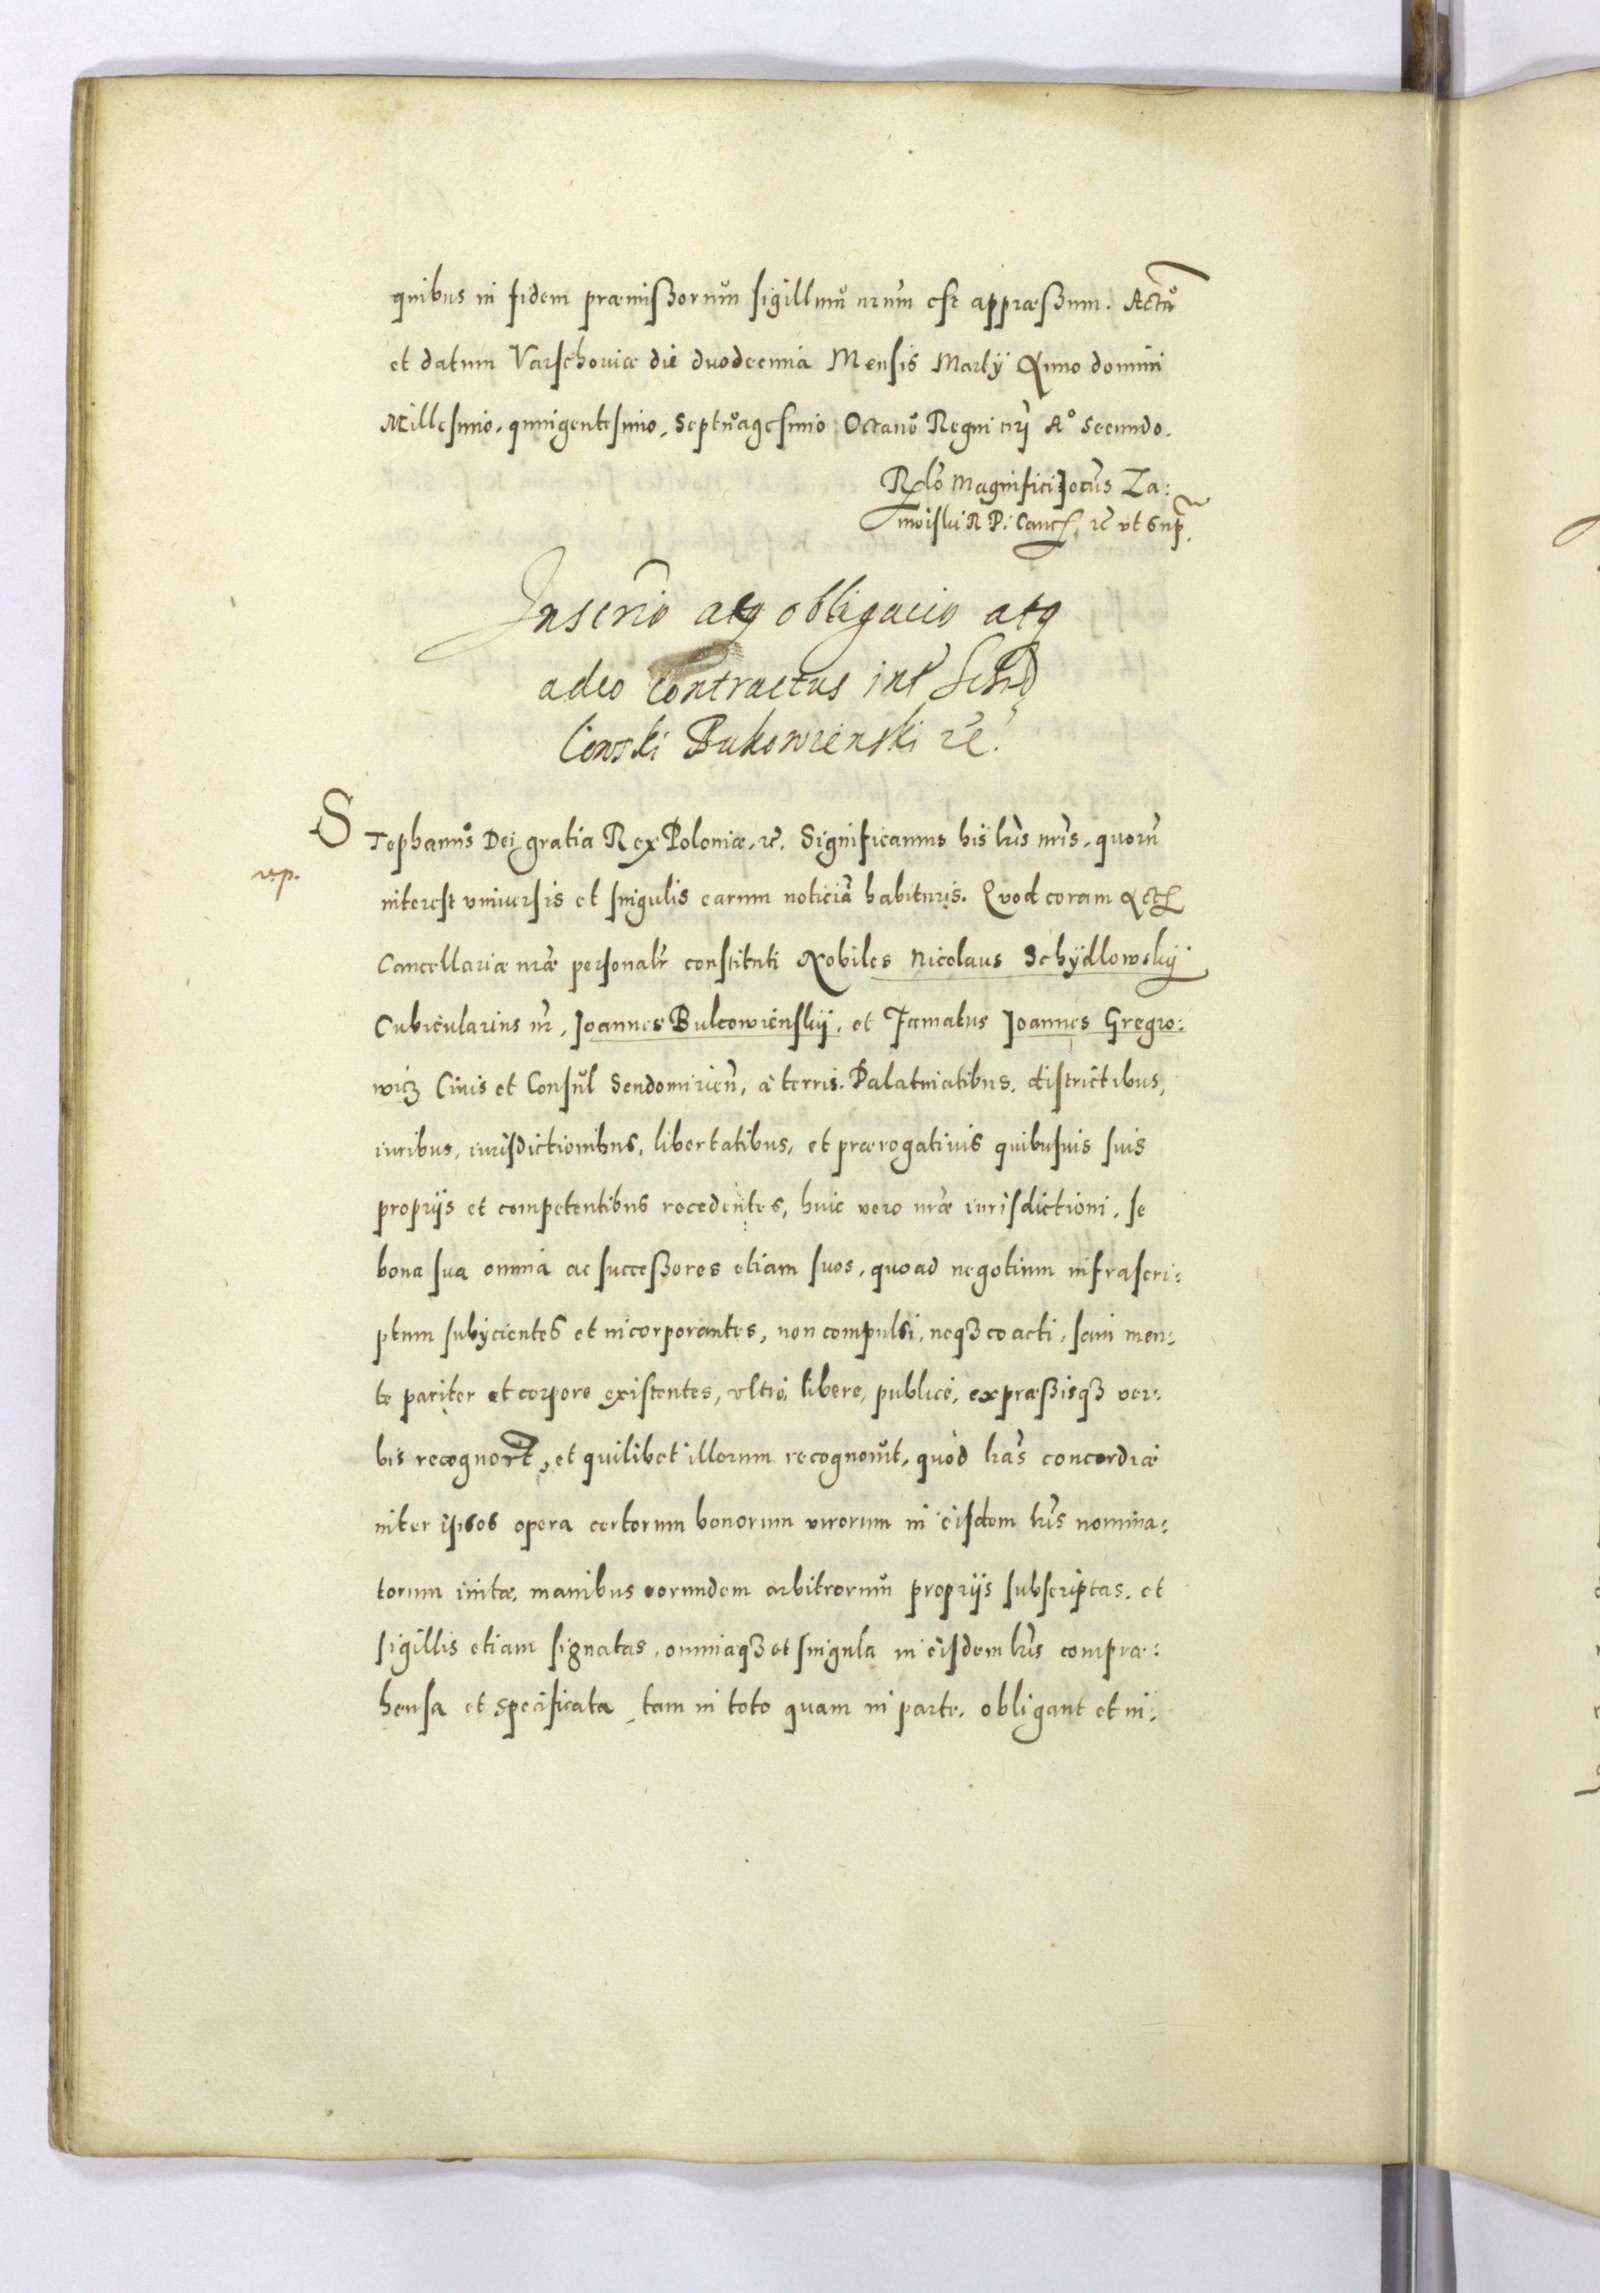 quibus in fidem præmissorum sigillum nrũm est appræssum. Actũ
et datum Varschoviæ die duodecima Mensis Martÿ Anno domini
Millesimo, quingentesimo, Septuagesimo Octavo Regni nrj Aº Secundo.
Rlo Magnifici Joãnis Za:
moiski R P. Canc. rc̃ ut Supr̃.
Inscrio atq obligacio atq
adeo Contractus int̃ Schid
lowski Bukowienski rc̃.
STephanus Dei gratia Rex Poloniæ, rc̃. Significamus his lrĩs nrĩs, quorũ
rep.
interest vniversis et singulis earum noticiã habituris. Quod coram Actis
Cancellariæ nrãe personalr̃ constituti Nobiles Nicolaus Schÿdlowskÿ
Cubicularius nr̃, Joannes Bukowienskÿ, et Famatus Joannes Gregro:
wicz Civis et Consul Sendomirien̄, a terris, Palatinatibus, districtibus,
iuribus, iurisdictionibus, libertatibus, et prærogativis quibusuis suis
proprÿs et competentibus recedentes, huic vero nrãe iurisdictioni, se
bona sua omnia ac successores etiam suos, quoad negotium infrascri:
ptum subÿcientes et incorporantes, non compulsi, neqз coacti, sani men:
te pariter et corpore existentes, vltro, libere, publice, expræssisqз ver:
bis recognort̃, et quilibet illorum recognovit, quòd lrãs concordiæ
inter ipsos opera certorum bonorum virorum in eisdem lrĩs nomina:
torum initæ, manibus eorundem arbitrorum proprÿs subscriptas, et
sigillis etiam signatas, omniaqз et singula in eisdem lrĩs compræ:
hensa et specificata tam in toto quam in parte, obligant et in: